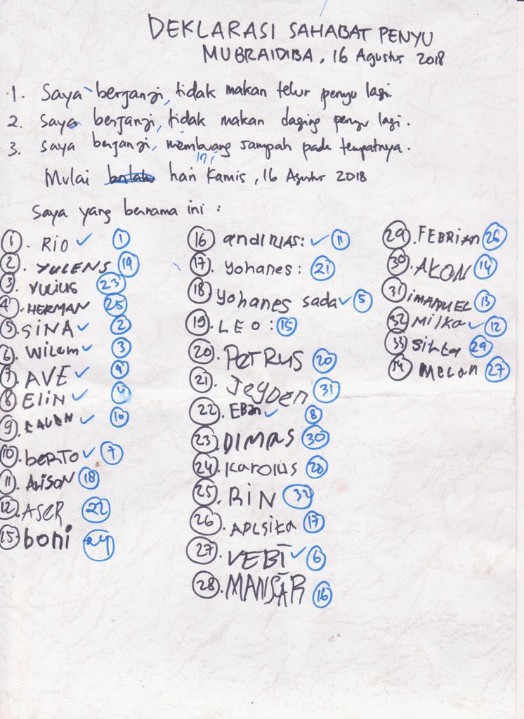 DEKLARASI SAHABAT PENYU
MUBRAIDIBA, 16 Agustus 2018
1. Saya berjanji, tidak makan telur penyu lagi.
2. Saya berjanji, tidak makan daging penyu lagi.
3. Saya berjanji, membuang sampah pada tempatnya.
ini
Mulai hari Kamis, 16 Agustus 2018
Saya yang bernama ini :
1. RIO ✓ 1
2. YULENS 19
3. YULIUS 23
4. HERMAN 25
5. SINA ✓ 2
6. Wilem ✓ 3
7. AVE ✓
8. ELin ✓
9. ✓ 10
10. berto ✓ 7
11. ALiSON 18
12. ASER 22
boni 24
16 andirias: ✓ 11
17. yohanes: 21
18 yohanes sada ✓ 5
19. LEO: 15
20. PETRUS 20
21. Jeyden 31
22. EBan ✓ 8
23. DIMAS 30
24. Karolus
25. RIN 32
26. APLSiKa 17
27. VEBI ✓ 6
28. MANSAR 16
29. FEBRIan 26
30. AKON 14
31 imanuel 13
32 Milka ✓ 12
33 29
Melan 27